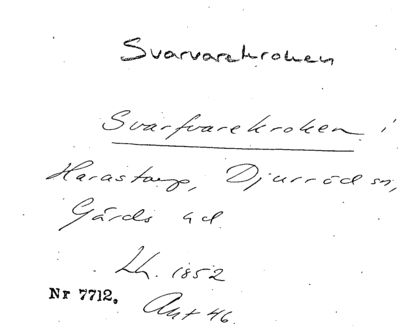 Svarvarekroken
Svarfvarekroken i
Harastorp, Djurröd sn,
Gärds hd.
Lh. 1852
Nr 7712. Akt 46.